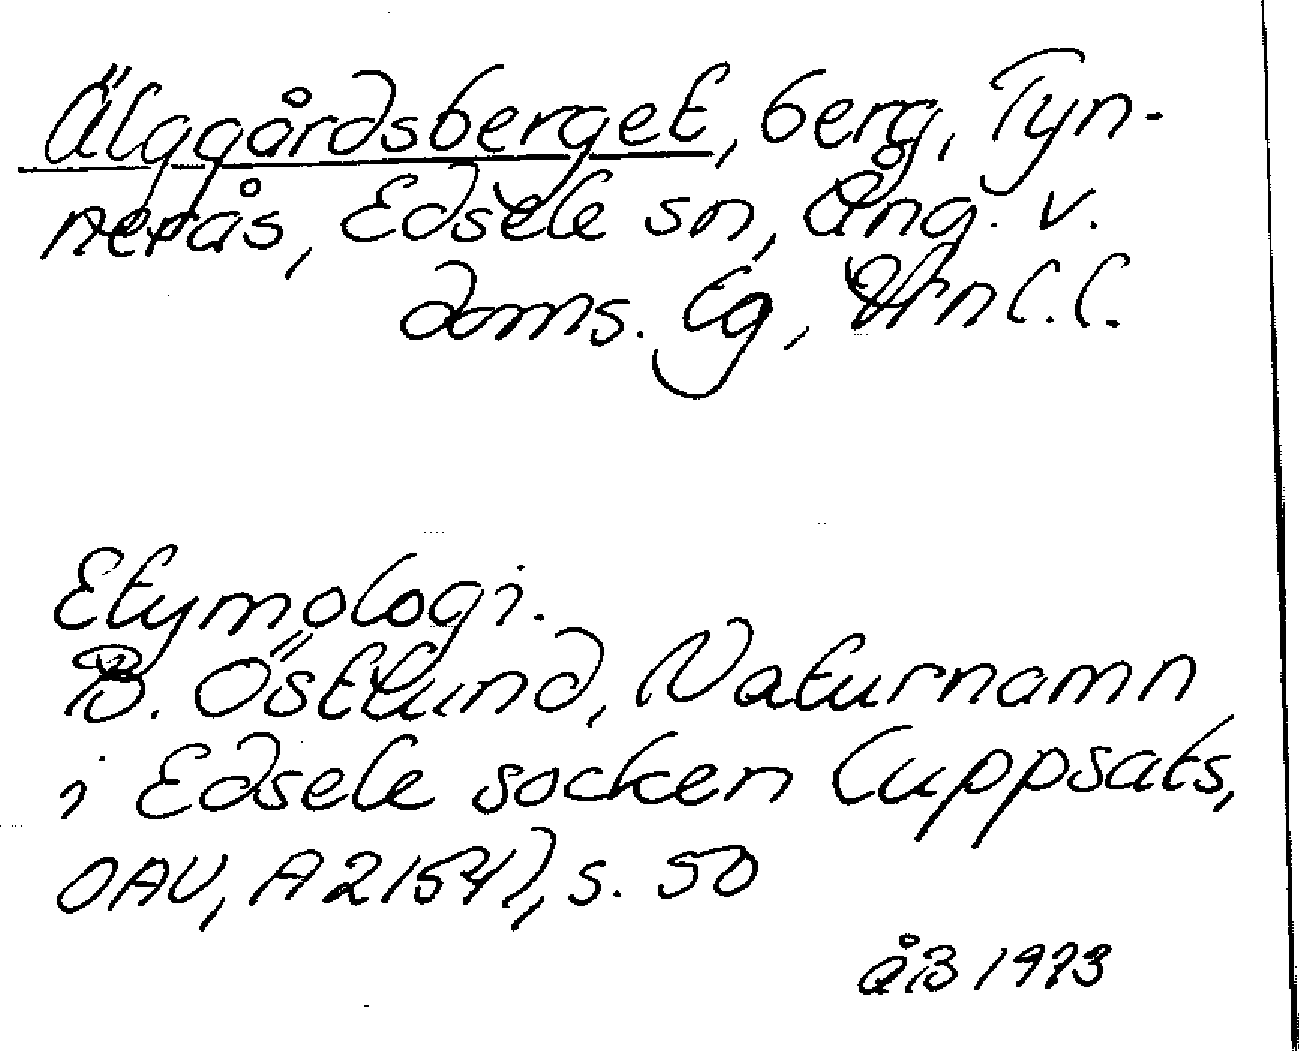 Älggårdsberget, berg, Tyn-
nerås, Edsele sn, Ång. v.
doms. lg, Vrnl.l.
Etymologi.
B. Östlund, Naturnamn
i Edsele socken (uppsats,
OAU, A 2154), s. 50
ÅB 1973